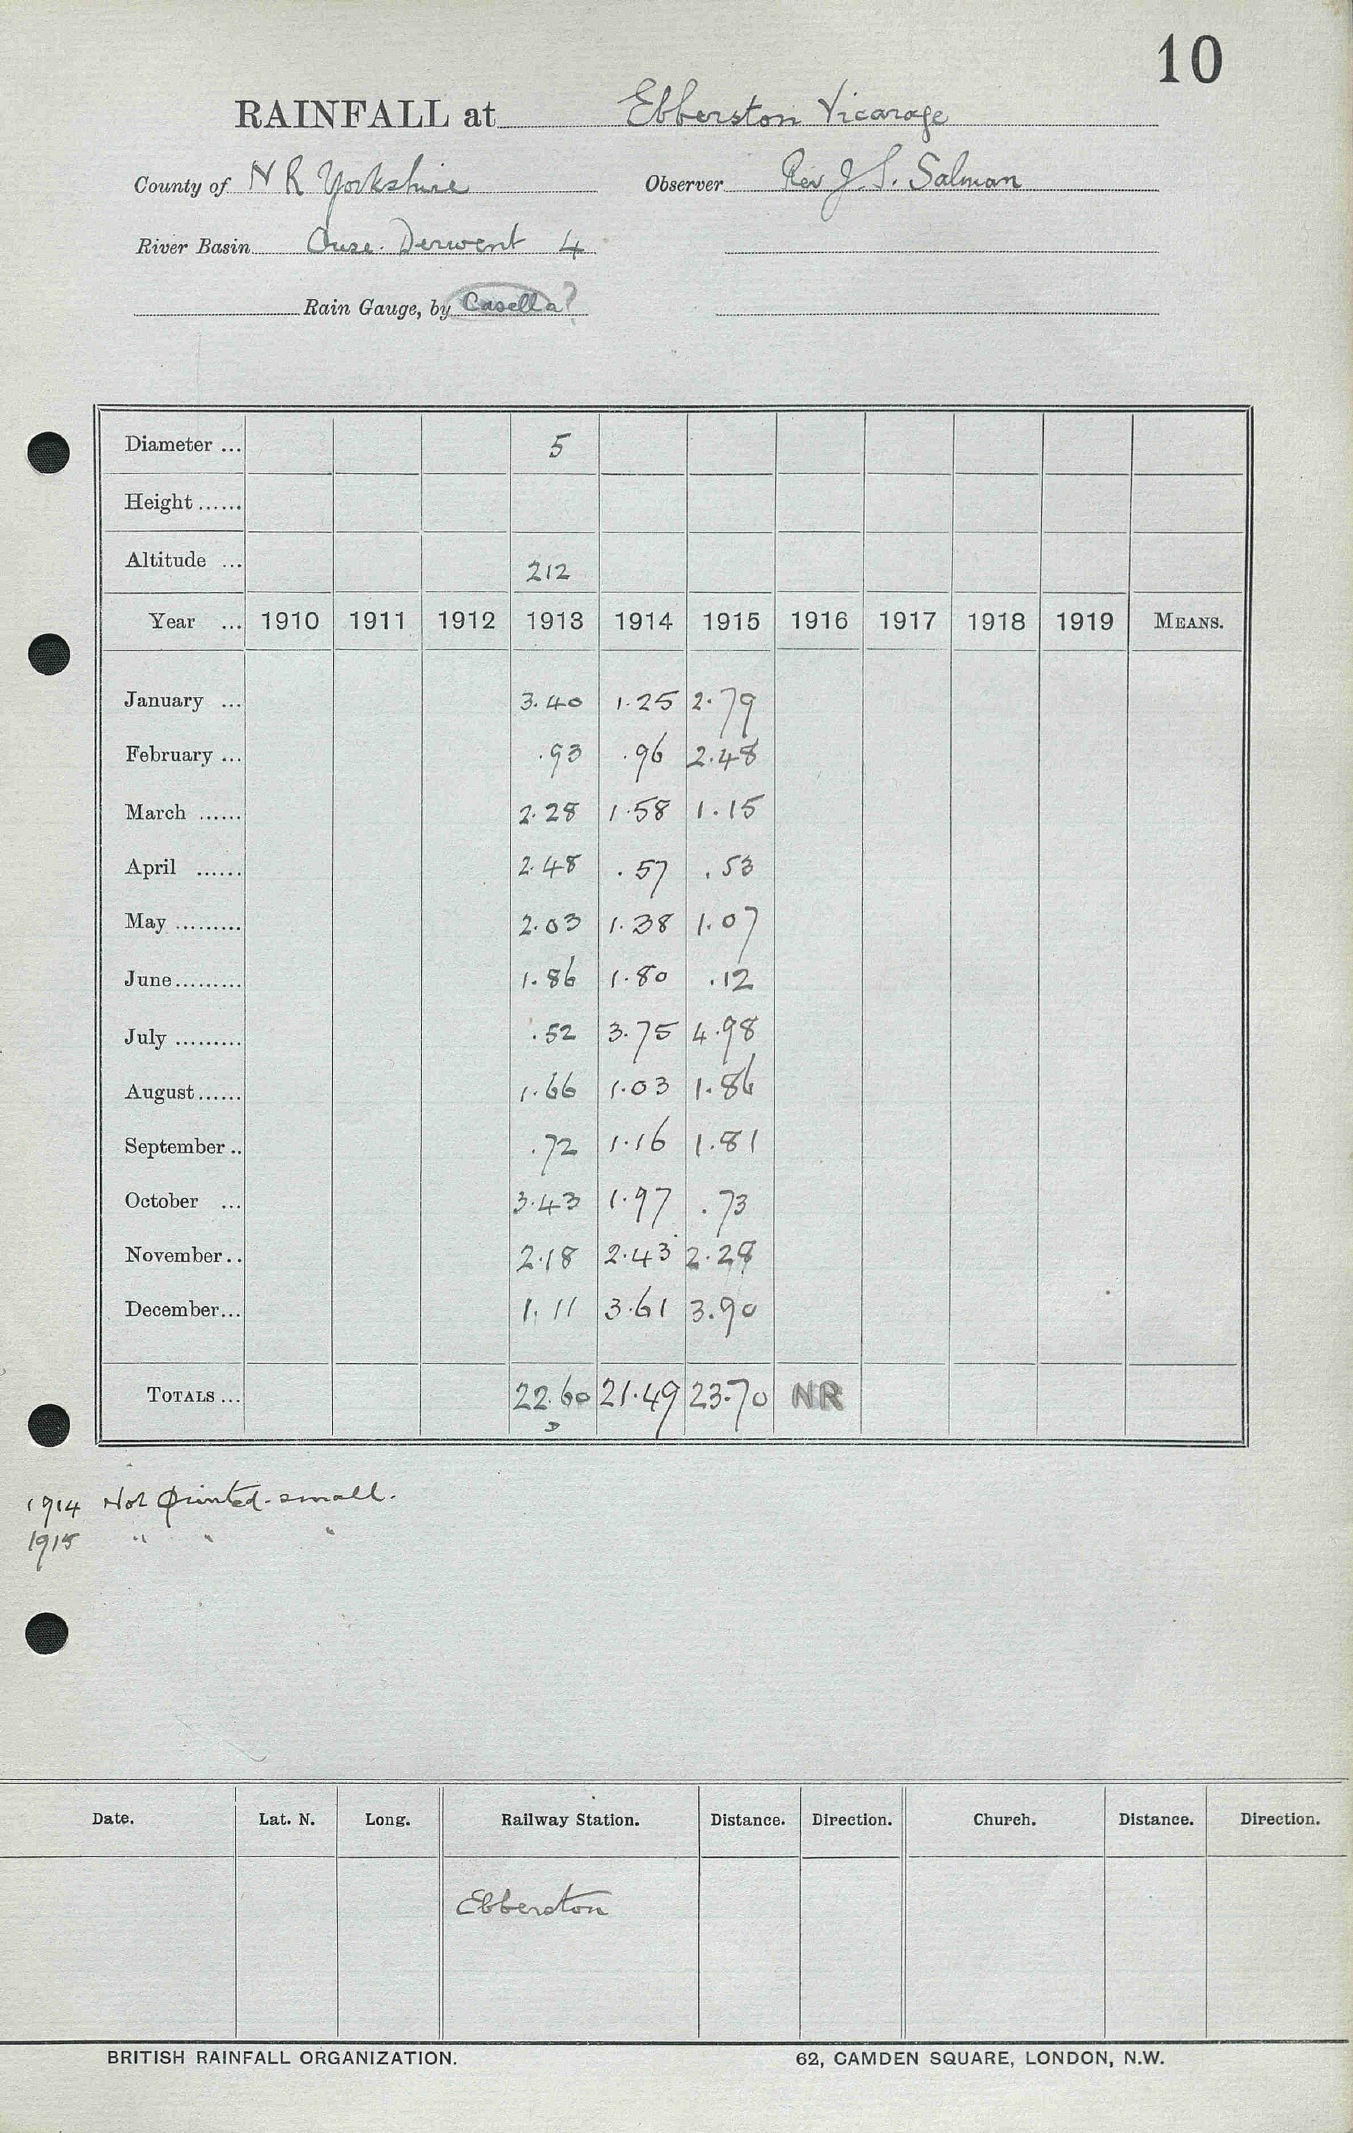 10
RAINFALL at Ebberston Vicarage
County of N R Yorkshire Observer Rev J. S. Salman
River Basin Ouse. Derwent 4
Rain Gauge, by Casella?
Diameter ... 5
Height ......
Altitude ... 212
Year ... 1910 1911 1912 1913 1914 1915 1916 1917 1918 1919 MEANS.
January ... 3.40 1.25 2.79
February ... .93 .96 2.48
March ...... 2.28 1.58 1.15
April ...... 2.48 .57 .53
May ......... 2.03 1.38 1.07
June ......... 1.86 1.80 .12
July ......... .52 3.75 4.98
August ...... 1.66 1.03 1.86
September .. .72 1.16 1.81
October ... 3.43 1.97 .73
November .. 2.18 2.43 2.28
December ... 1.11 3.61 3.90
TOTALS ... 22.60 21.49 23.70 NR
D
1914 Not printed. small.
1915 " " "
Date. Lat. N. Long. Railway Station. Distance. Direction. Church. Distance. Direction.
Ebberston
BRITISH RAINFALL ORGANIZATION. 62, CAMDEN SQUARE, LONDON, N.W.